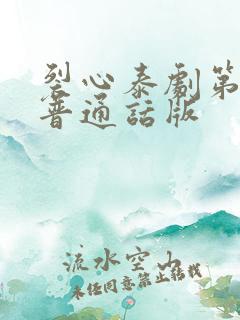 烈心泰劇第
普通話版
流水空山
未任同意禁止轉載